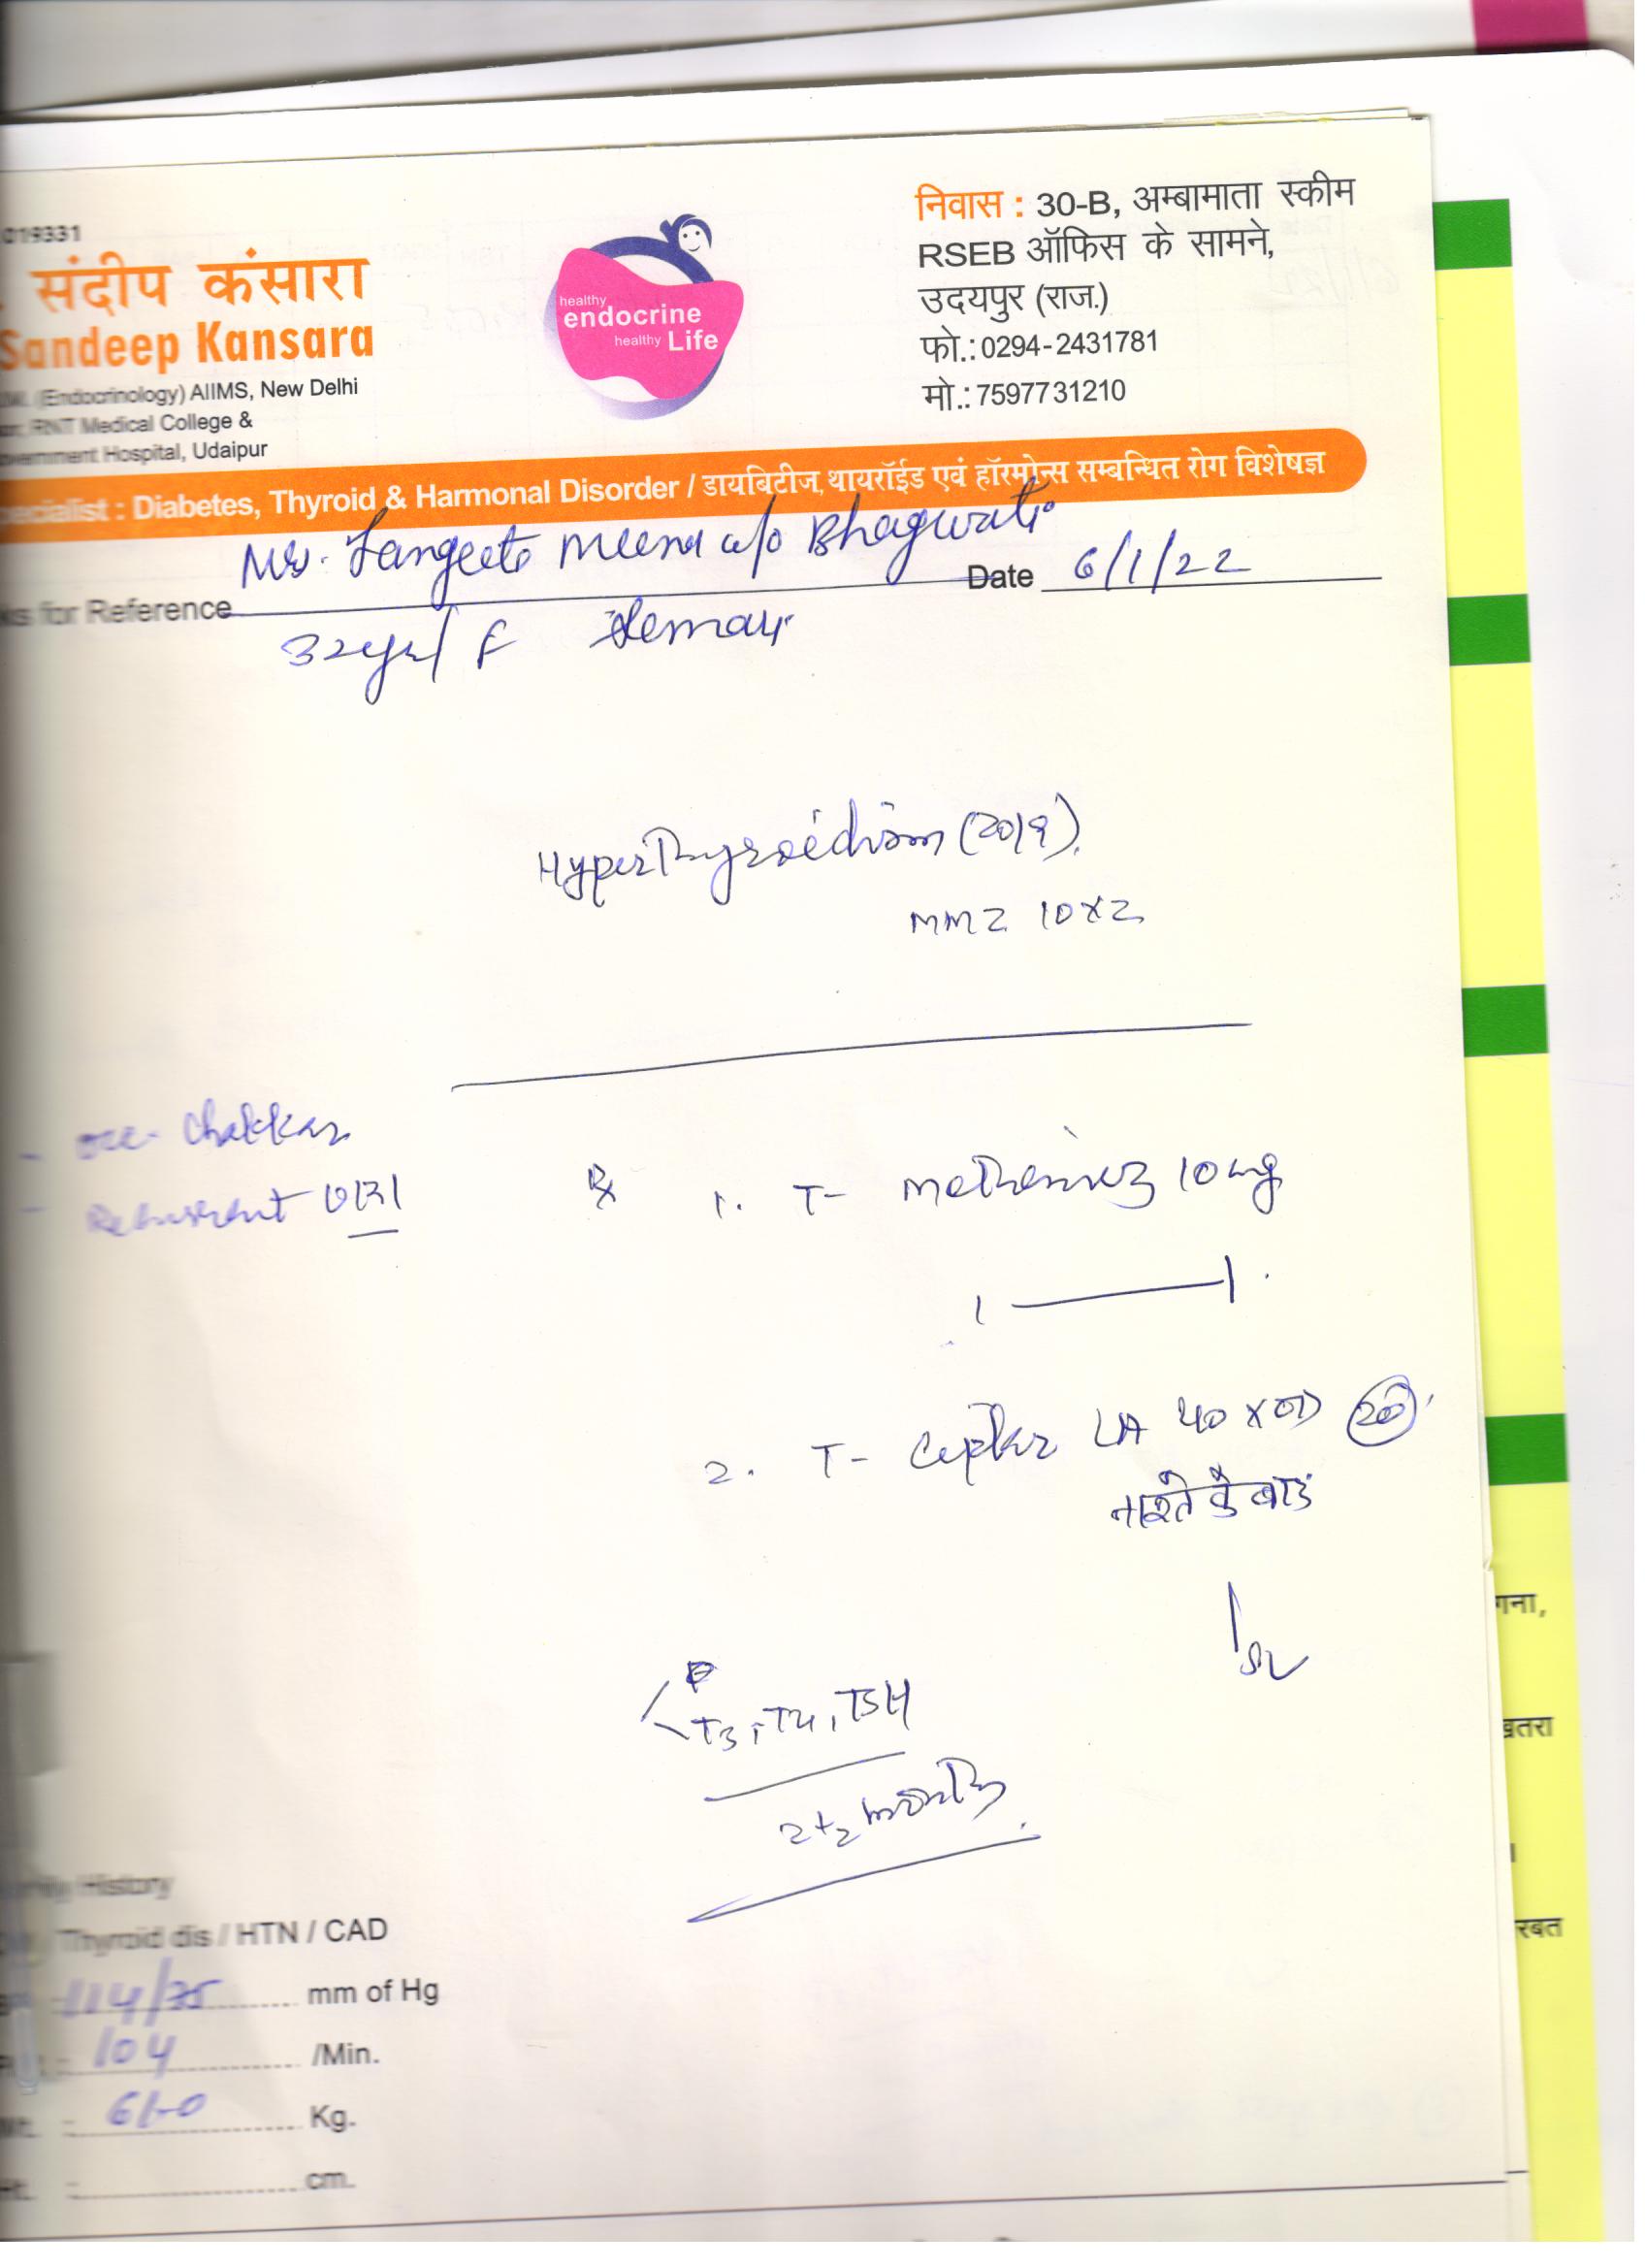 019331
संदीप कंसारा
Sandeep Kansara
(Endocrinology) AIIMS, New Delhi
RNT Medical College &
Government Hospital, Udaipur
healthy
endocrine
healthy Life
निवास : 30-B, अम्बामाता स्कीम
RSEB ऑफिस के सामने,
उदयपुर (राज.)
फो.: 0294-2431781
मो.: 7597731210
Specialist : Diabetes, Thyroid & Harmonal Disorder / डायबिटीज, थायरॉईड एवं हॉरमोन्स सम्बन्धित रोग विशेषज्ञ
Mrs. Sangeeta Meena w/o Bhagwati
for Reference
Date 6/1/22
32yrs/ F
Hyperthyroidism (2019).
MMZ 10x2
- occ- Chakkar
- Recurrent URI
Rx 1. T- methimez 10 mg
1 — 1
2. T- LA 40 x OD 20
नाश्ते के बाद
T3, T4, TSH
2+2 months
Family History
Thyroid dis / HTN / CAD
114/75 mm of Hg
104 /Min.
61.0 Kg.
Ht. cm.
गना,
खतरा
रबत